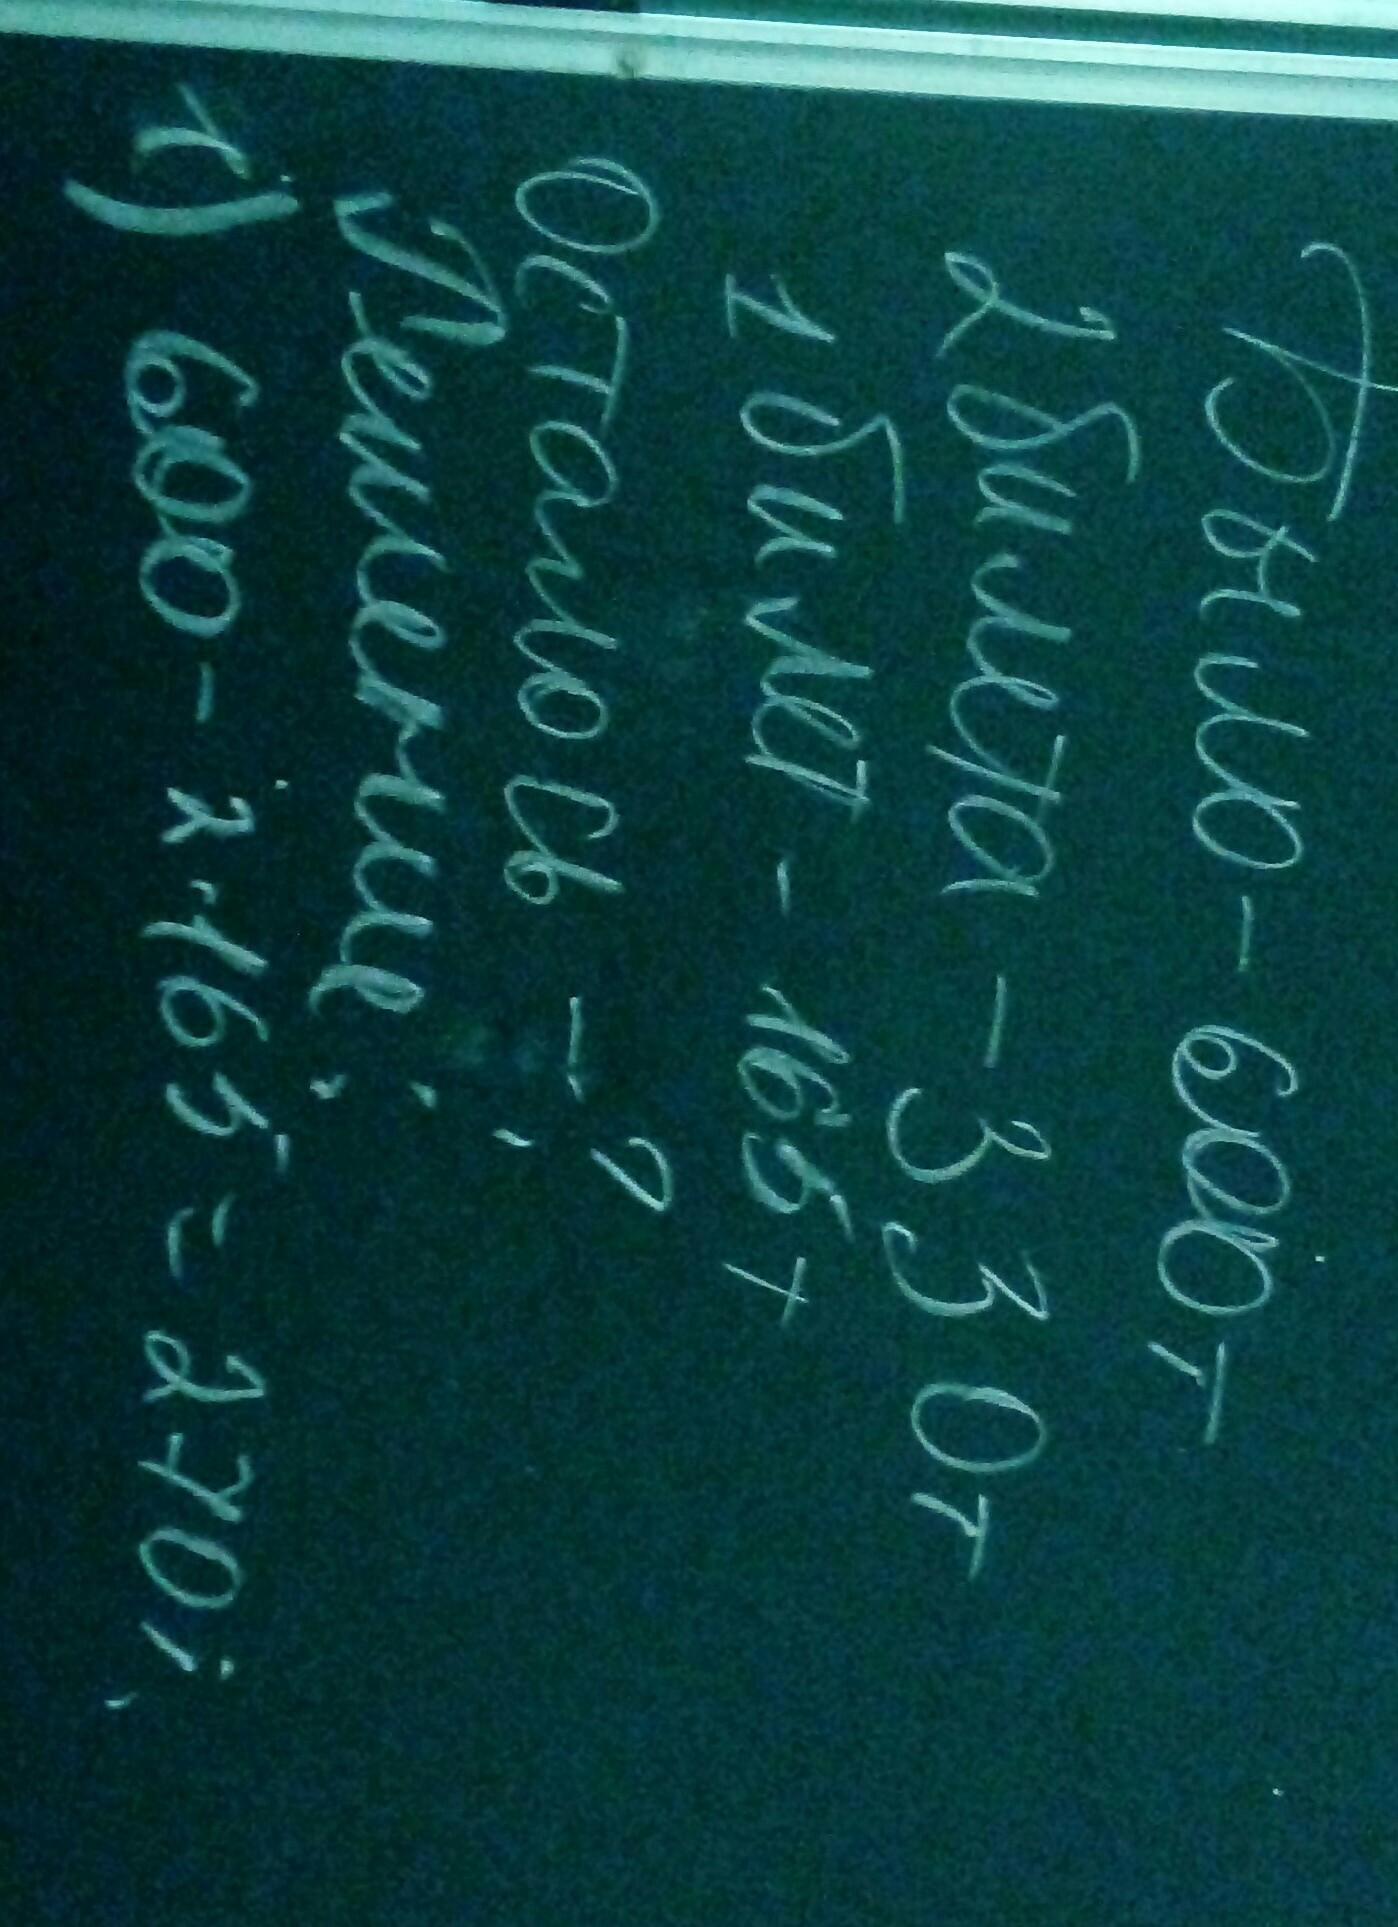 Было - 600т
2 билета - 330т
1 билет - 165т
Осталось - ?
Решение:
1) 600 - 2·165 = 270;